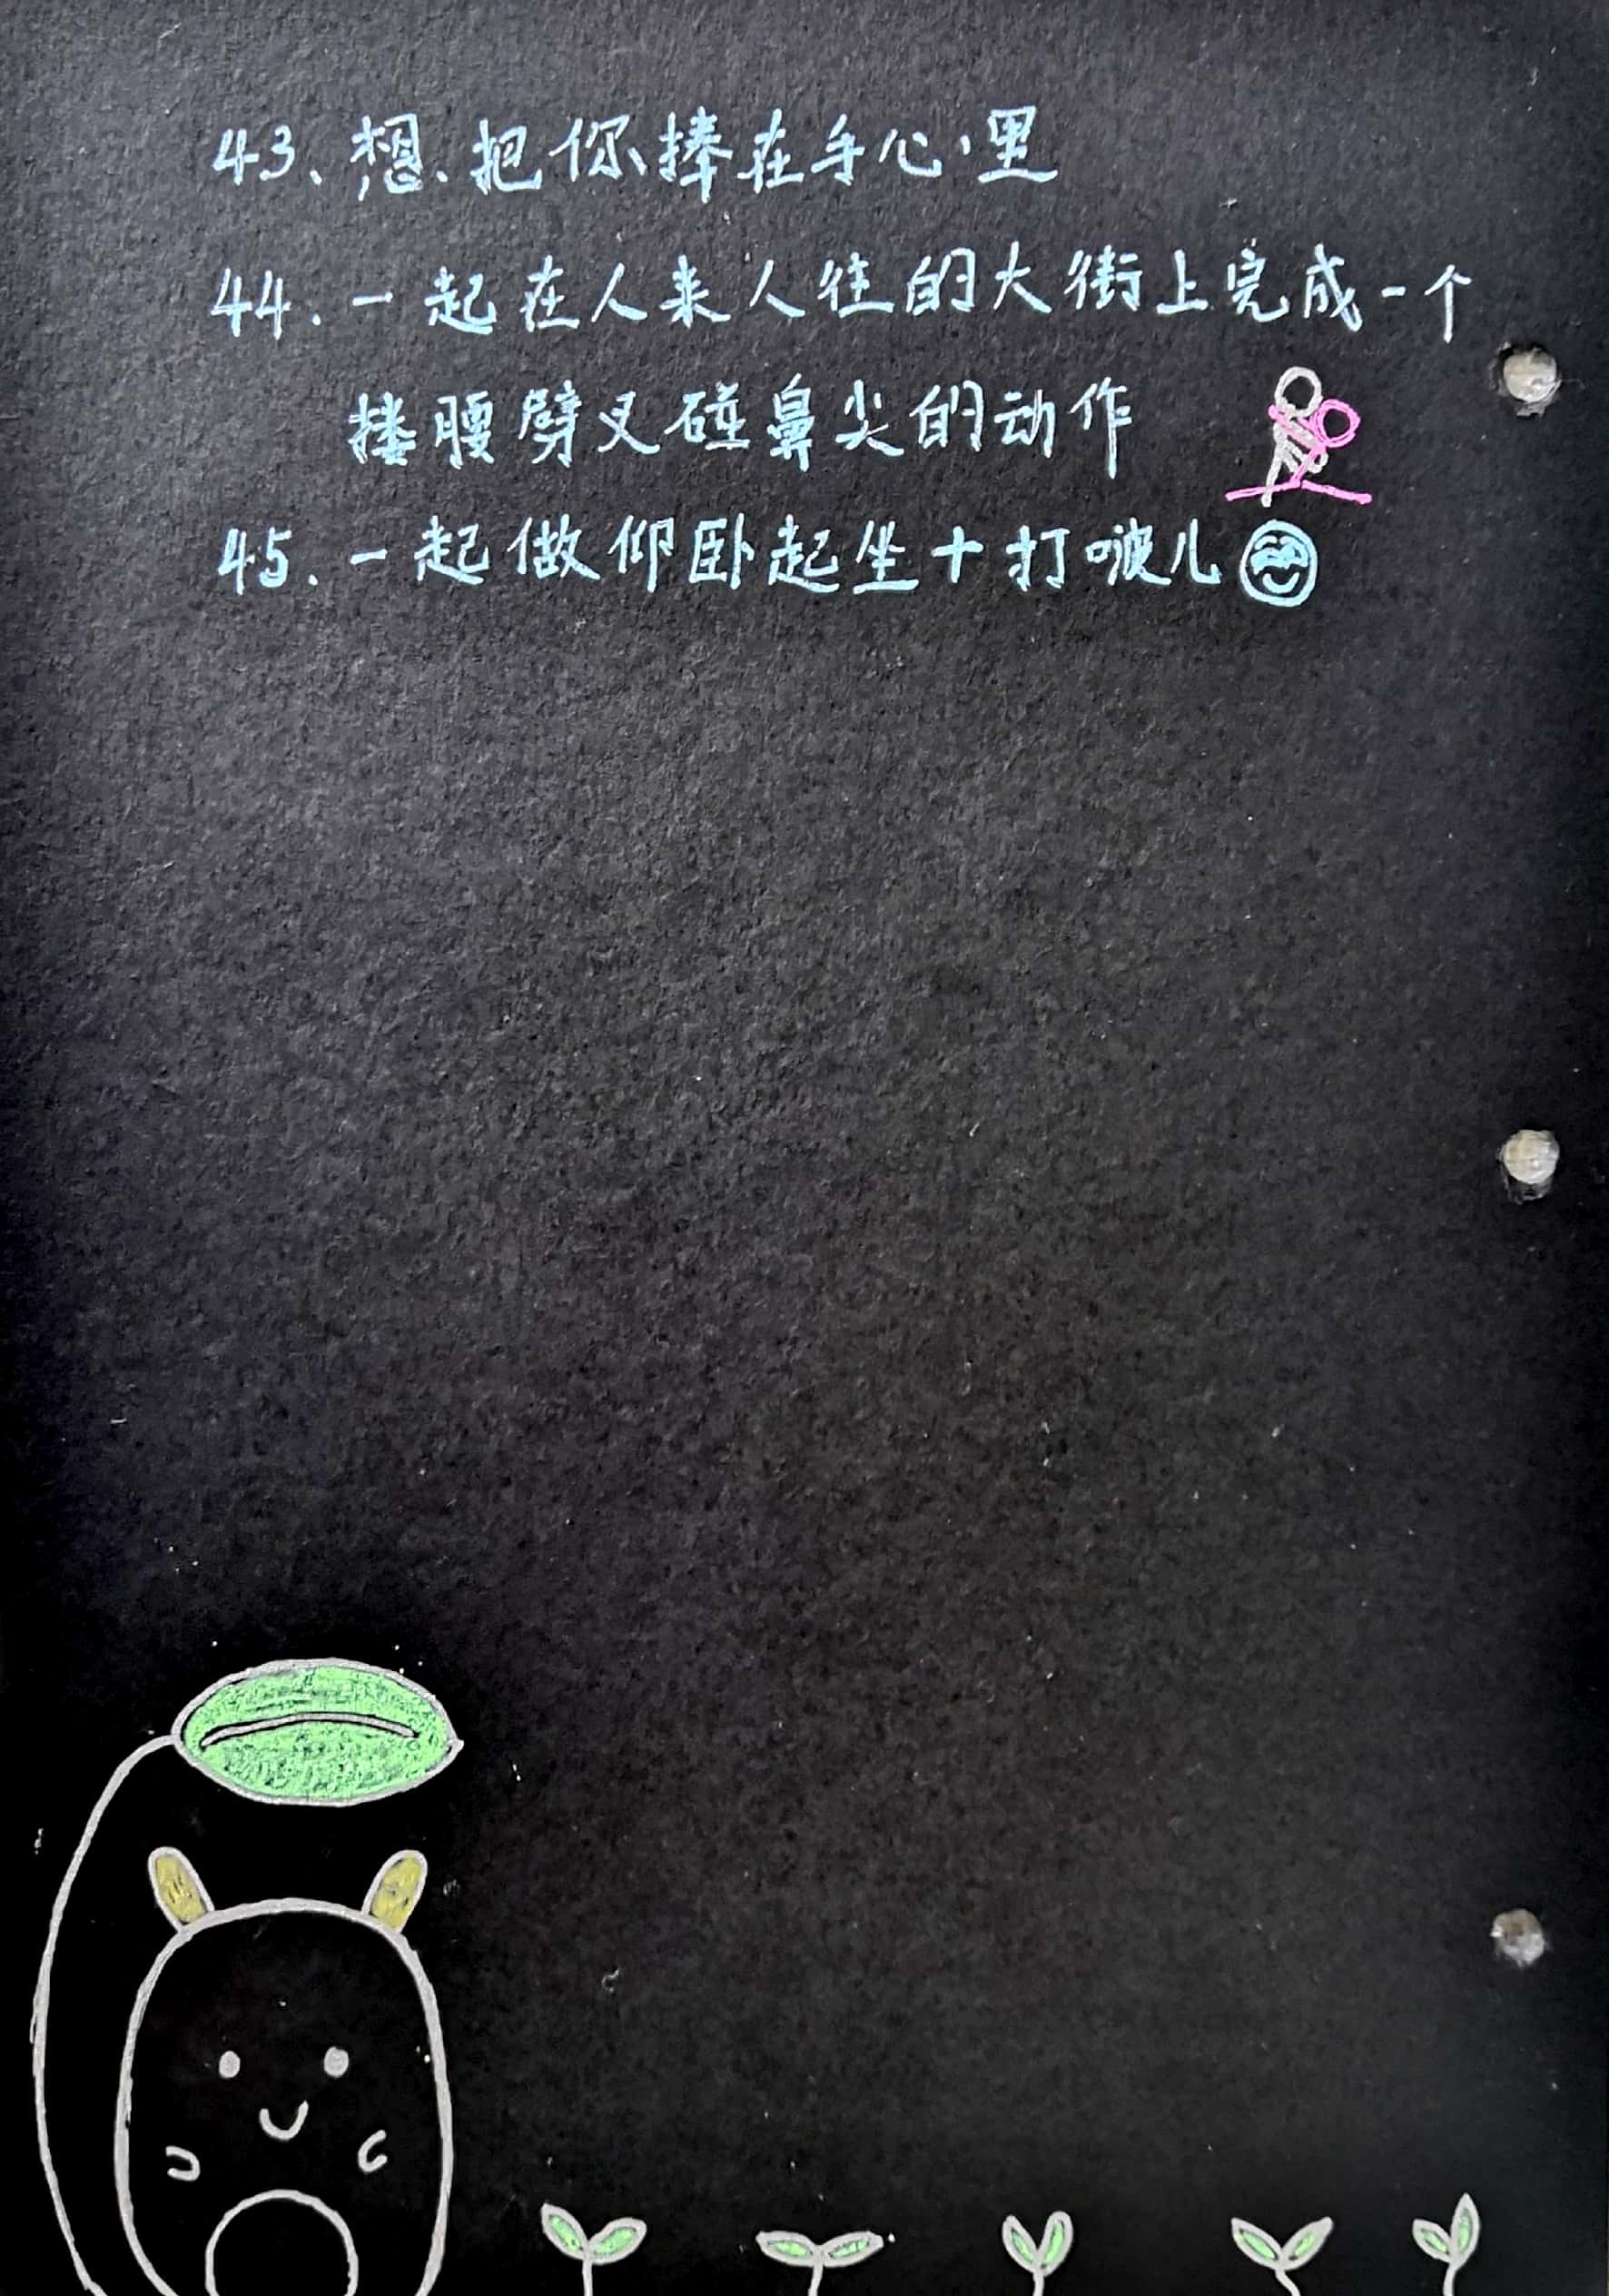 43、想把你捧在手心里
44.一起在人来人往的大街上完成一个
搂腰劈叉碰鼻尖的动作
45.一起做仰卧起坐+打啵儿